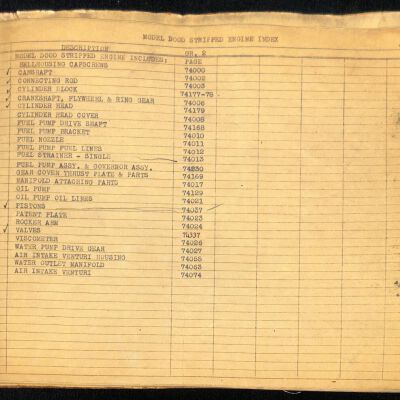 MODEL DOOD STRIPPED ENGINE INDEX
DESCRIPTION GR. 2
MODEL DOOD STRIPPED ENGINE INCLUDES: PAGE
BELLHOUSING CAPSCREWS 74000
CAMSHAFT 74002
CONNECTING ROD 74003
CYLINDER BLOCK 74177-78
CRANKSHAFT, FLYWHEEL & RING GEAR 74006
CYLINDER HEAD 74179
CYLINDER HEAD COVER 74008
FUEL PUMP DRIVE SHAFT 74168
FUEL PUMP BRACKET 74010
FUEL NOZZLE 74011
FUEL PUMP FUEL LINES 74012
FUEL STRAINER - SINGLE 74013
FUEL PUMP ASSY. & GOVERNOR ASSY.
GEAR COVER THRUST PLATE & PARTS 74169
MANIFOLD ATTACHING PARTS 74017
OIL PUMP 74129
OIL PUMP OIL LINES 74021
PISTONS 74037
PATENT PLATE 74023
ROCKER ARM 74024
VALVES
VISCOMETER 74026
WATER PUMP DRIVE GEAR 74027
AIR INTAKE VENTURI HOUSING 74055
WATER OUTLET MANIFOLD 74063
AIR INTAKE VENTURI 74074